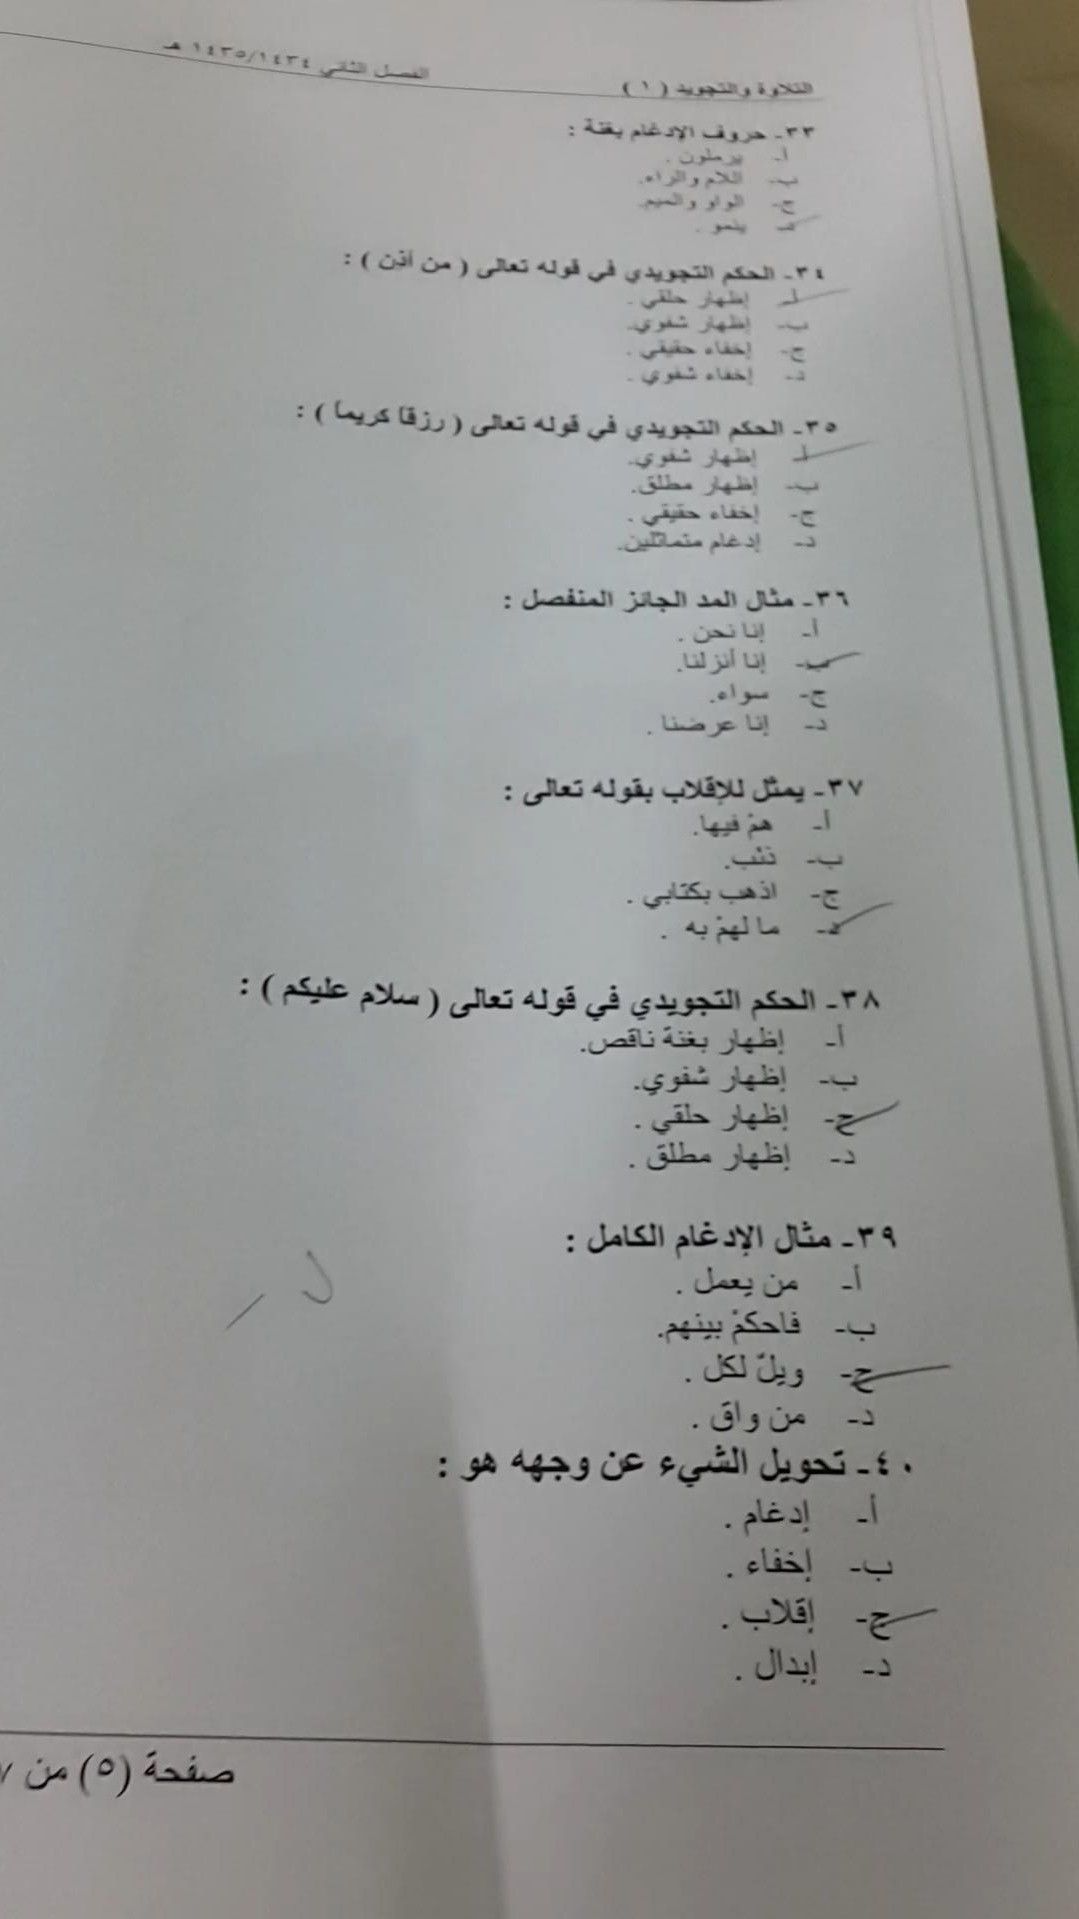 التلاوة والتجويد ( ١ ) الفصل الثاني ١٤٣٥/١٤٣٤ هـ
٣٣- حروف الإدغام بغنة :
أ- يرملون .
ب- اللام والراء.
ج- الواو والميم.
د- ينمو .
٣٤- الحكم التجويدي في قوله تعالى ( من أذن ) :
أ- إظهار حلقي .
ب- إظهار شفوي.
ج- إخفاء حقيقي .
د- إخفاء شفوي .
٣٥- الحكم التجويدي في قوله تعالى ( رزقا كريما ) :
أ- إظهار شفوي.
ب- إظهار مطلق.
ج- إخفاء حقيقي .
د- إدغام متماثلين.
٣٦- مثال المد الجائز المنفصل :
أ- إنا نحن .
ب- إنا أنزلنا.
ج- سواء.
د- إنا عرضنا .
٣٧- يمثل للإقلاب بقوله تعالى :
أ- همْ فيها.
ب- ذنْب.
ج- اذهب بكتابي .
د- ما لهمْ به .
٣٨- الحكم التجويدي في قوله تعالى ( سلام عليكم ) :
أ- إظهار بغنة ناقص.
ب- إظهار شفوي.
ج- إظهار حلقي .
د- إظهار مطلق .
٣٩- مثال الإدغام الكامل :
أ- من يعمل .
ب- فاحكمْ بينهم.
ج- ويلٌ لكل .
د- من واق .
٤٠- تحويل الشيء عن وجهه هو :
أ- إدغام .
ب- إخفاء .
ج- إقلاب .
د- إبدال .
صفحة (٥) من ٧